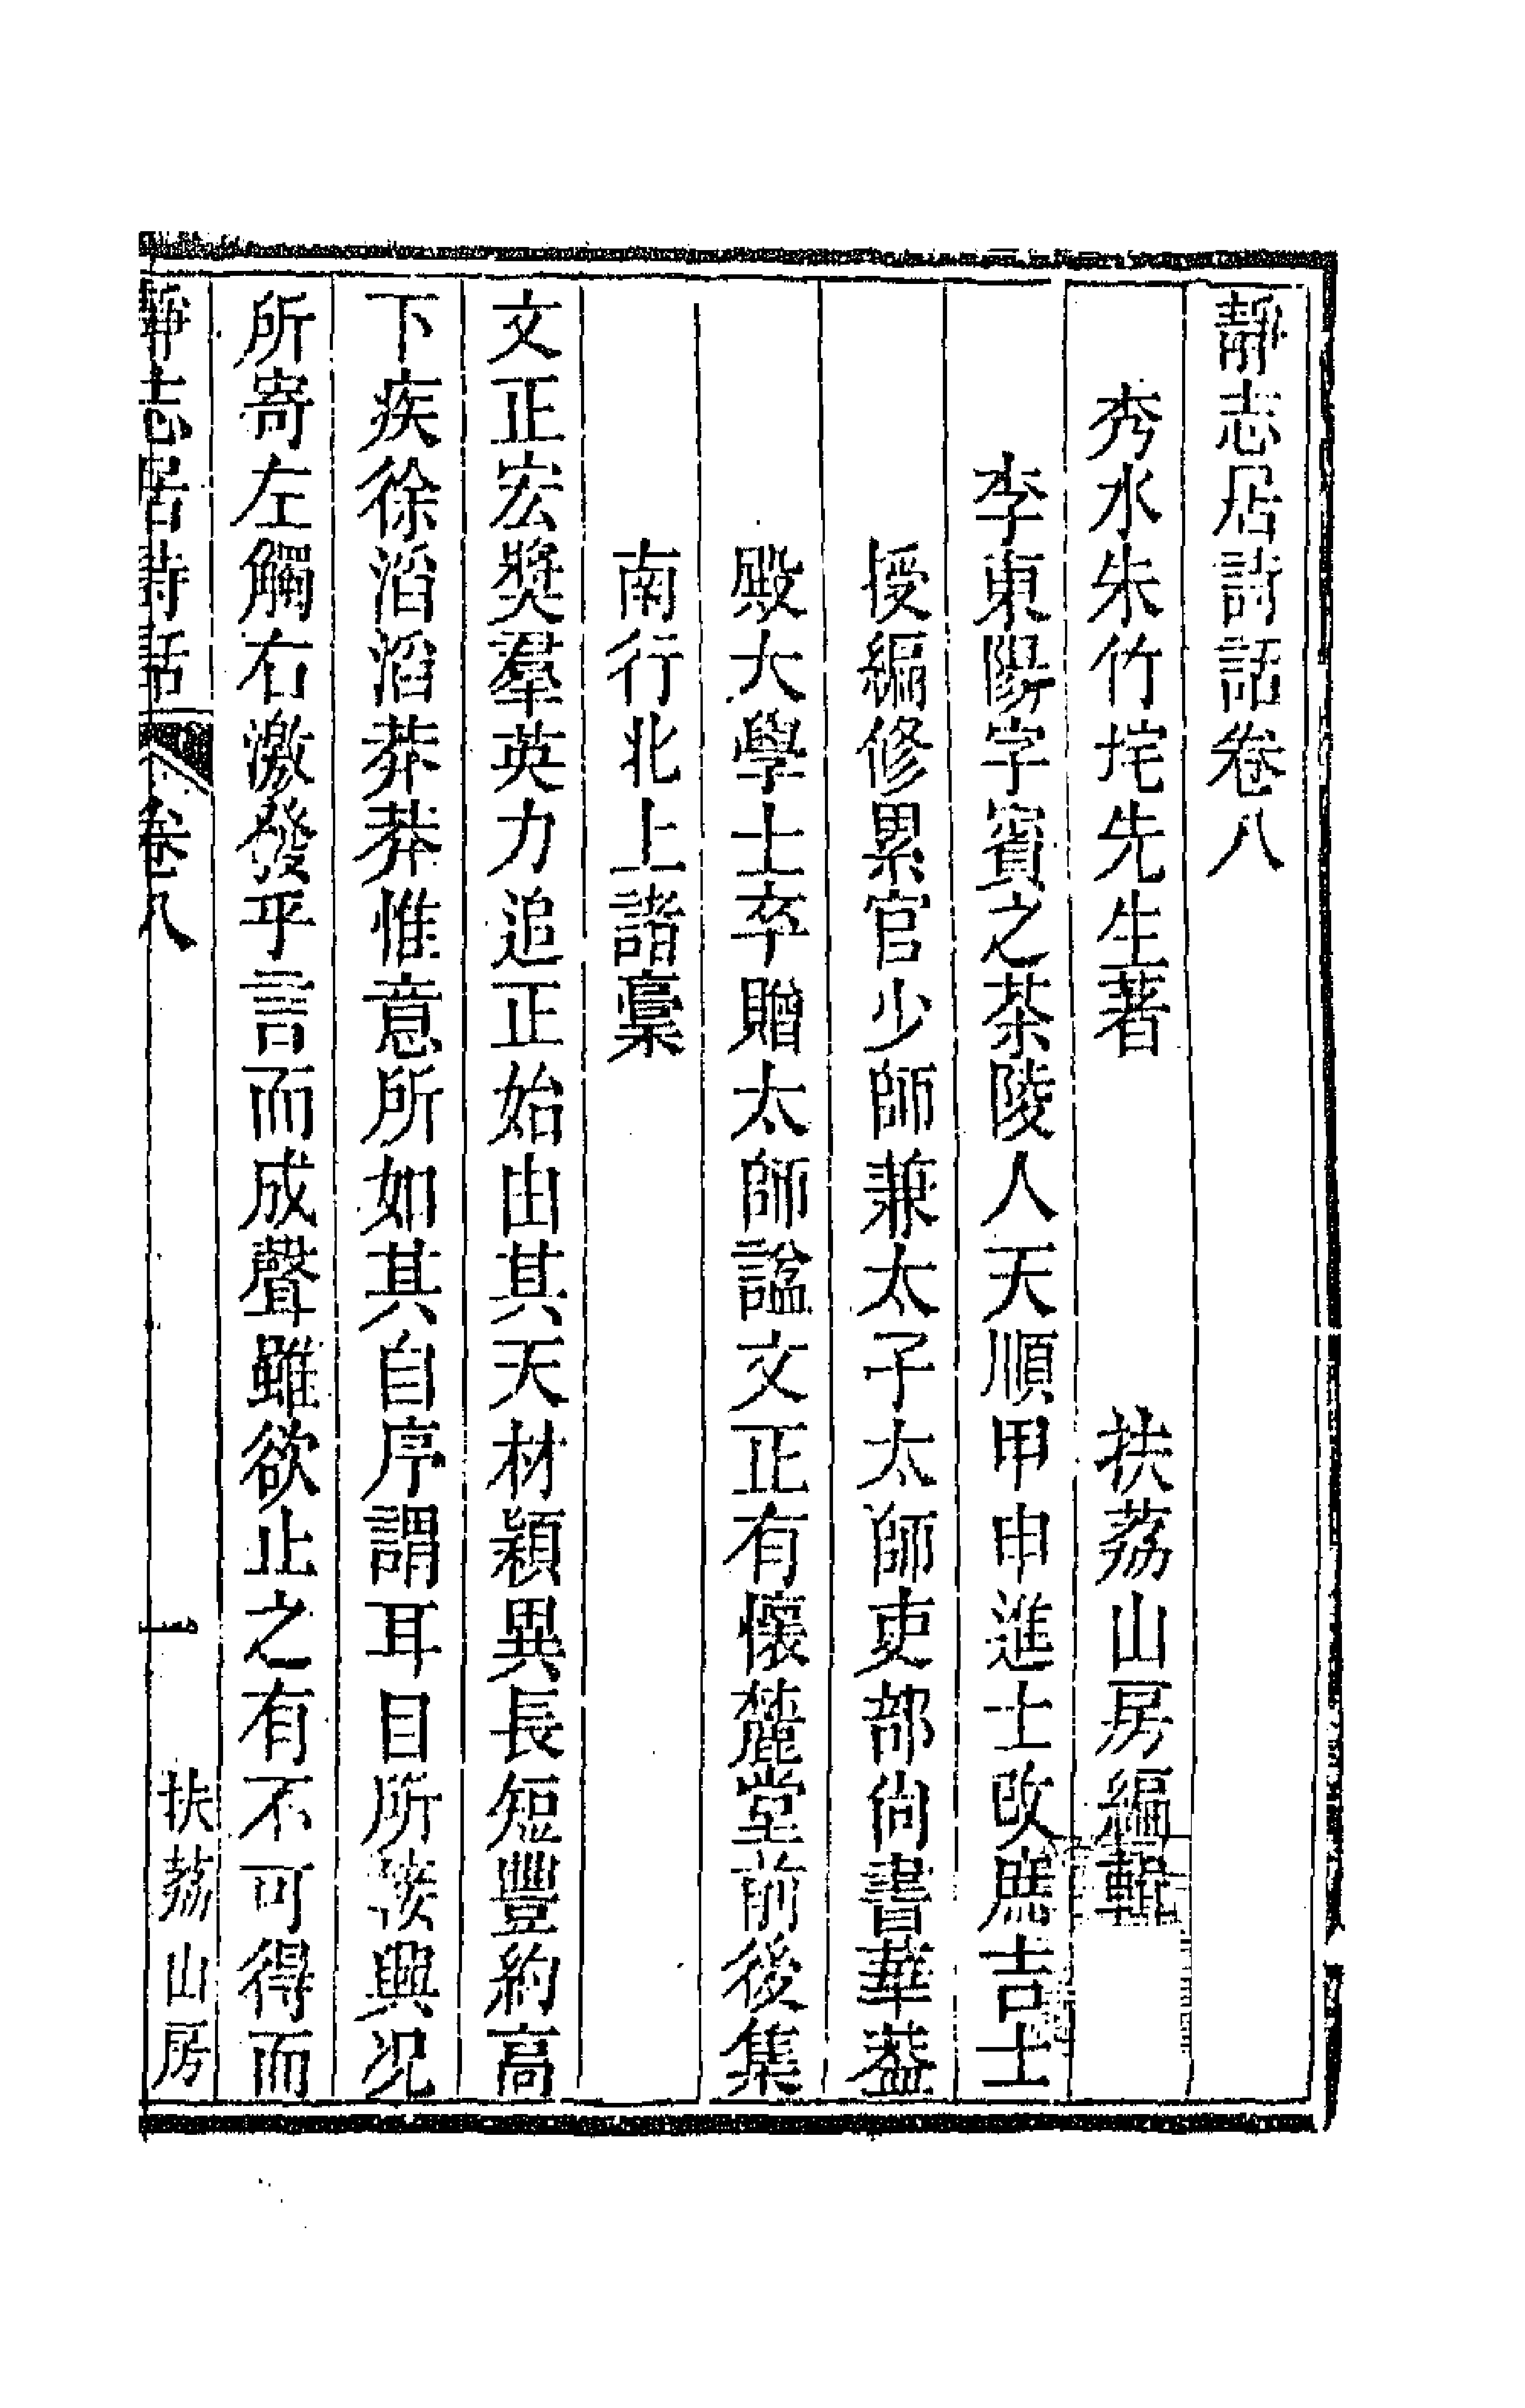 靜志居詩話卷八
秀水朱竹垞先生著 扶荔山房編輯
李東陽字賓之茶陵人天順甲申進士改庶吉士
授編修累官少師兼太子太師吏部尙書華葢
殿大學士卒贈太師諡文正有懷麓堂前後集
南行北上諸稾
文正宏奬羣英力追正始由其天材穎異長短豐約高
下疾徐滔滔莽莽惟意所如其自序謂耳目所接興况
所寄左觸右激發乎言而成聲雖欲止之有不可得而
靜志居詩話 卷八 一 扶荔山房